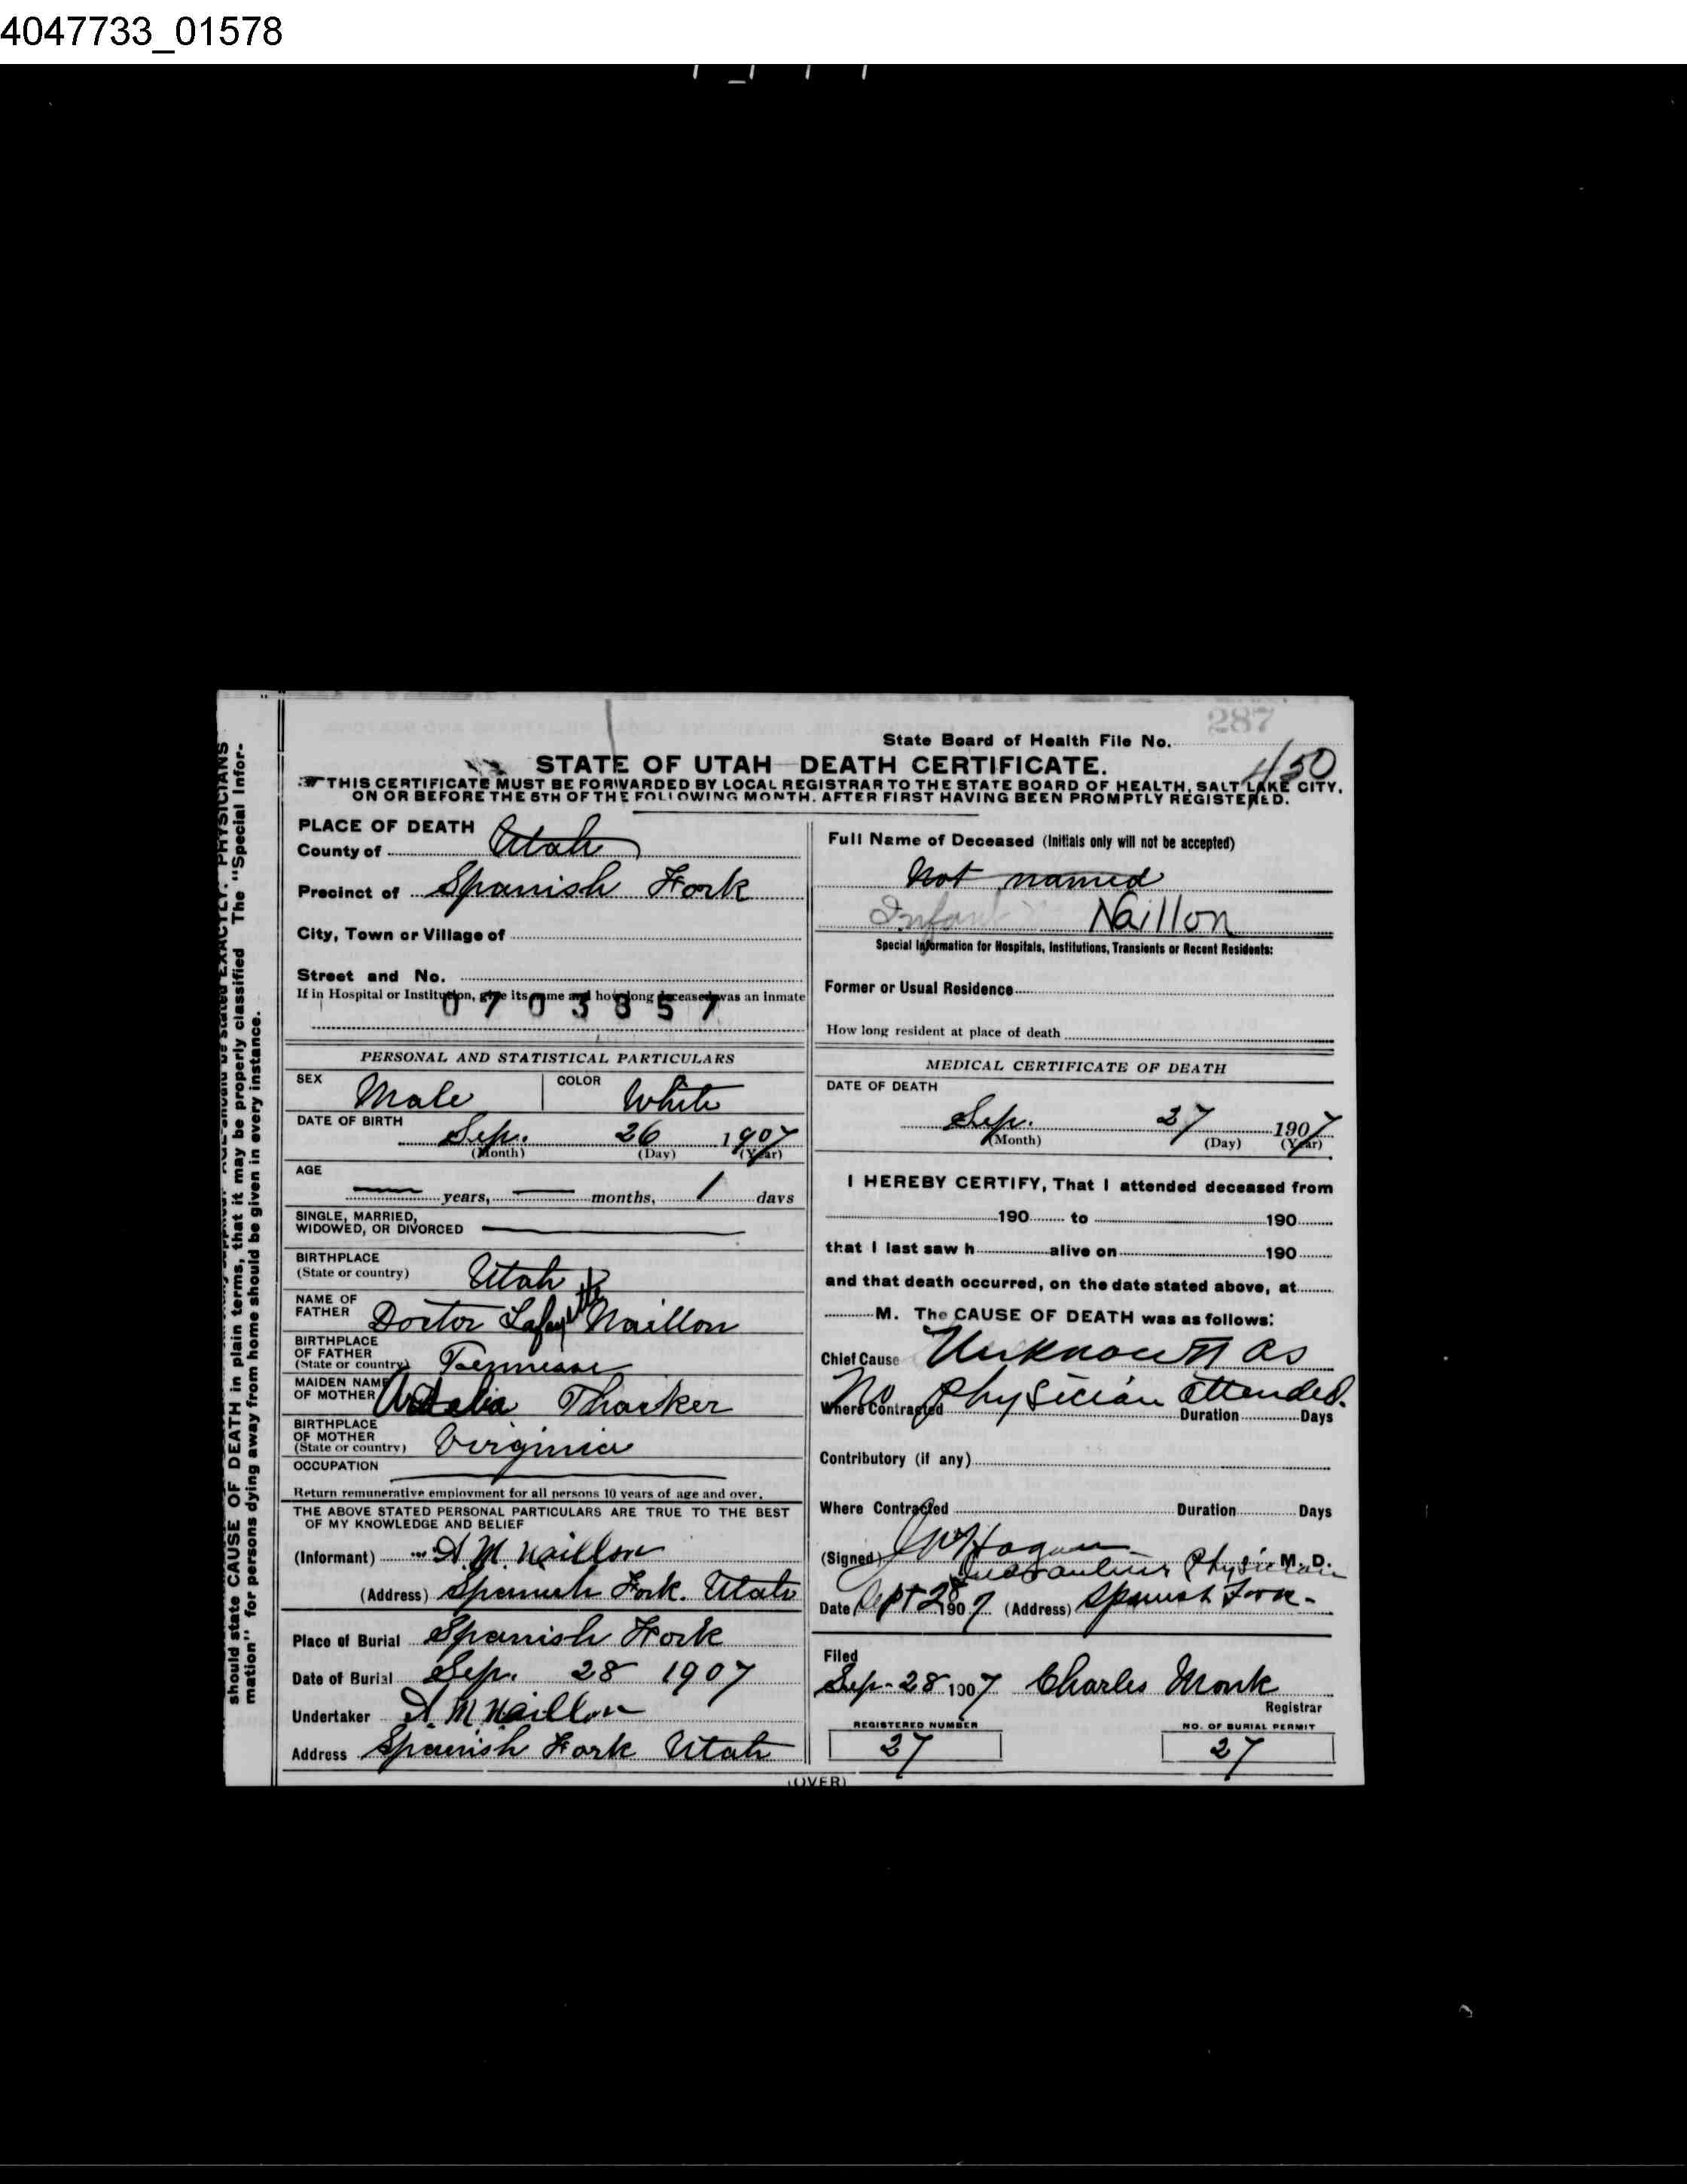 4047733_01578
287
State Board of Health File No.
450
STATE OF UTAH—DEATH CERTIFICATE.
☞ THIS CERTIFICATE MUST BE FORWARDED BY LOCAL REGISTRAR TO THE STATE BOARD OF HEALTH, SALT LAKE CITY,
ON OR BEFORE THE 5TH OF THE FOLLOWING MONTH, AFTER FIRST HAVING BEEN PROMPTLY REGISTERED.
PLACE OF DEATH
County of Utah
Precinct of Spanish Fork
City, Town or Village of
Street and No.
If in Hospital or Institution, give its name and how long deceased was an inmate
0703857
PERSONAL AND STATISTICAL PARTICULARS
SEX Male COLOR White
DATE OF BIRTH
Sep. 26 1907
(Month) (Day) (Year)
AGE
years, months, 1 days
SINGLE, MARRIED,
WIDOWED, OR DIVORCED
BIRTHPLACE
(State or country) Utah
NAME OF
FATHER Doctor Lafayette Naillon
BIRTHPLACE
OF FATHER
(State or country) Tennessee
MAIDEN NAME
OF MOTHER Thacker
BIRTHPLACE
OF MOTHER
(State or country) Virginia
OCCUPATION
Return remunerative employment for all persons 10 years of age and over.
THE ABOVE STATED PERSONAL PARTICULARS ARE TRUE TO THE BEST
OF MY KNOWLEDGE AND BELIEF
(Informant) A. M. Naillon
(Address) Spanish Fork. Utah
Place of Burial Spanish Fork
Date of Burial Sep. 28 1907
Undertaker A. M Naillon
Address Spanish Fork Utah
Full Name of Deceased (Initials only will not be accepted)
Not named
Infant Naillon
Special Information for Hospitals, Institutions, Transients or Recent Residents:
Former or Usual Residence
How long resident at place of death
MEDICAL CERTIFICATE OF DEATH
DATE OF DEATH
Sep. 27 1907
(Month) (Day) (Year)
I HEREBY CERTIFY, That I attended deceased from
190 to 190
that I last saw h alive on 190
and that death occurred, on the date stated above, at
M. The CAUSE OF DEATH was as follows:
Chief Cause Unknown as
No Physician attended.
Where Contracted Duration Days
Contributory (if any)
Where Contracted Duration Days
(Signed) J W Hagan M. D.
Quarantine Physician
Date Sept 28 1907 (Address) Spanish Fork-
Filed
Sep-28 1907 Charles Monk
Registrar
REGISTERED NUMBER NO. OF BURIAL PERMIT
27 27
(OVER)
should state CAUSE OF DEATH in plain terms, that it may be properly classified The "Special Infor-
mation" for persons dying away from home should be given in every instance.